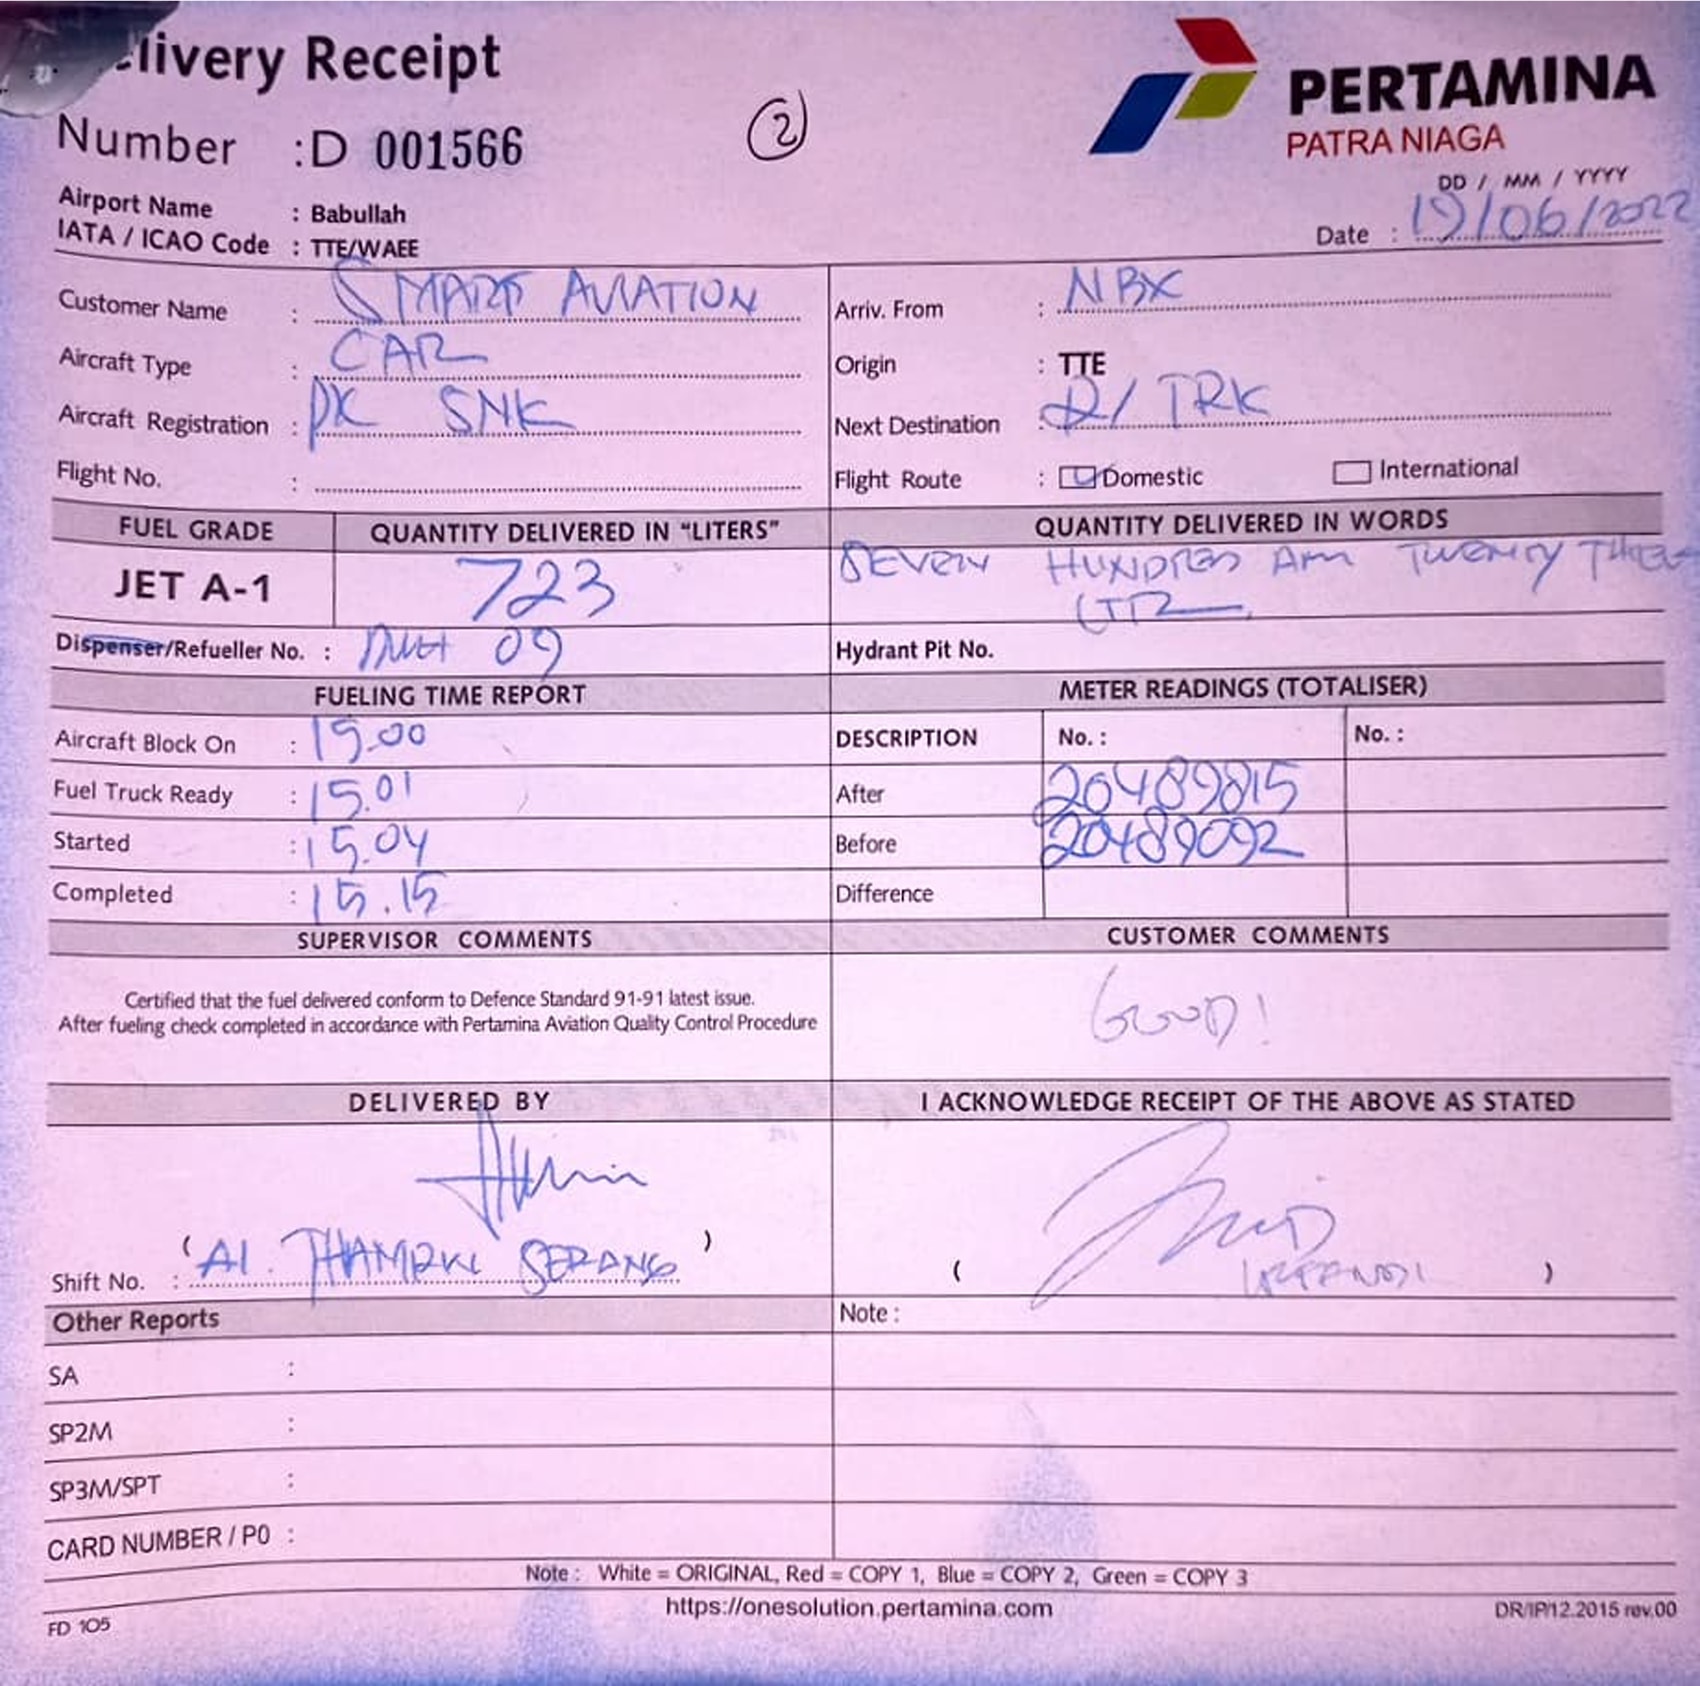 elivery Receipt
Number :D 001566
②
PERTAMINA
PATRA NIAGA
DD / MM / YYYY
Date : 19/06/2022
Airport Name : Babullah
IATA / ICAO Code : TTE/WAEE
Customer Name : SMART AVIATION
Aircraft Type : CAR
Aircraft Registration : PK SNK
Flight No. :
Arriv. From : NBX
Origin : TTE
Next Destination : / TRK
Flight Route : Domestic International
FUEL GRADE QUANTITY DELIVERED IN "LITERS" QUANTITY DELIVERED IN WORDS
JET A-1 723 SEVEN HUNDRED AND TWENTY THREE
LTR
Dispenser/Refueller No. : 09 Hydrant Pit No.
FUELING TIME REPORT
Aircraft Block On : 15.00
Fuel Truck Ready : 15.01
Started : 15.04
Completed : 15.15
METER READINGS (TOTALISER)
DESCRIPTION No. : No. :
After 20489815
Before 20489092
Difference
SUPERVISOR COMMENTS
Certified that the fuel delivered conform to Defence Standard 91-91 latest issue.
After fueling check completed in accordance with Pertamina Aviation Quality Control Procedure
CUSTOMER COMMENTS
GOOD!
DELIVERED BY
( )
Shift No. : A1. SERANG
I ACKNOWLEDGE RECEIPT OF THE ABOVE AS STATED
( )
Other Reports
SA :
SP2M :
SP3M/SPT :
CARD NUMBER / PO :
Note :
Note : White = ORIGINAL, Red = COPY 1, Blue = COPY 2, Green = COPY 3
https://onesolution.pertamina.com
FD 105
DR/IP/12.2015 rev.00